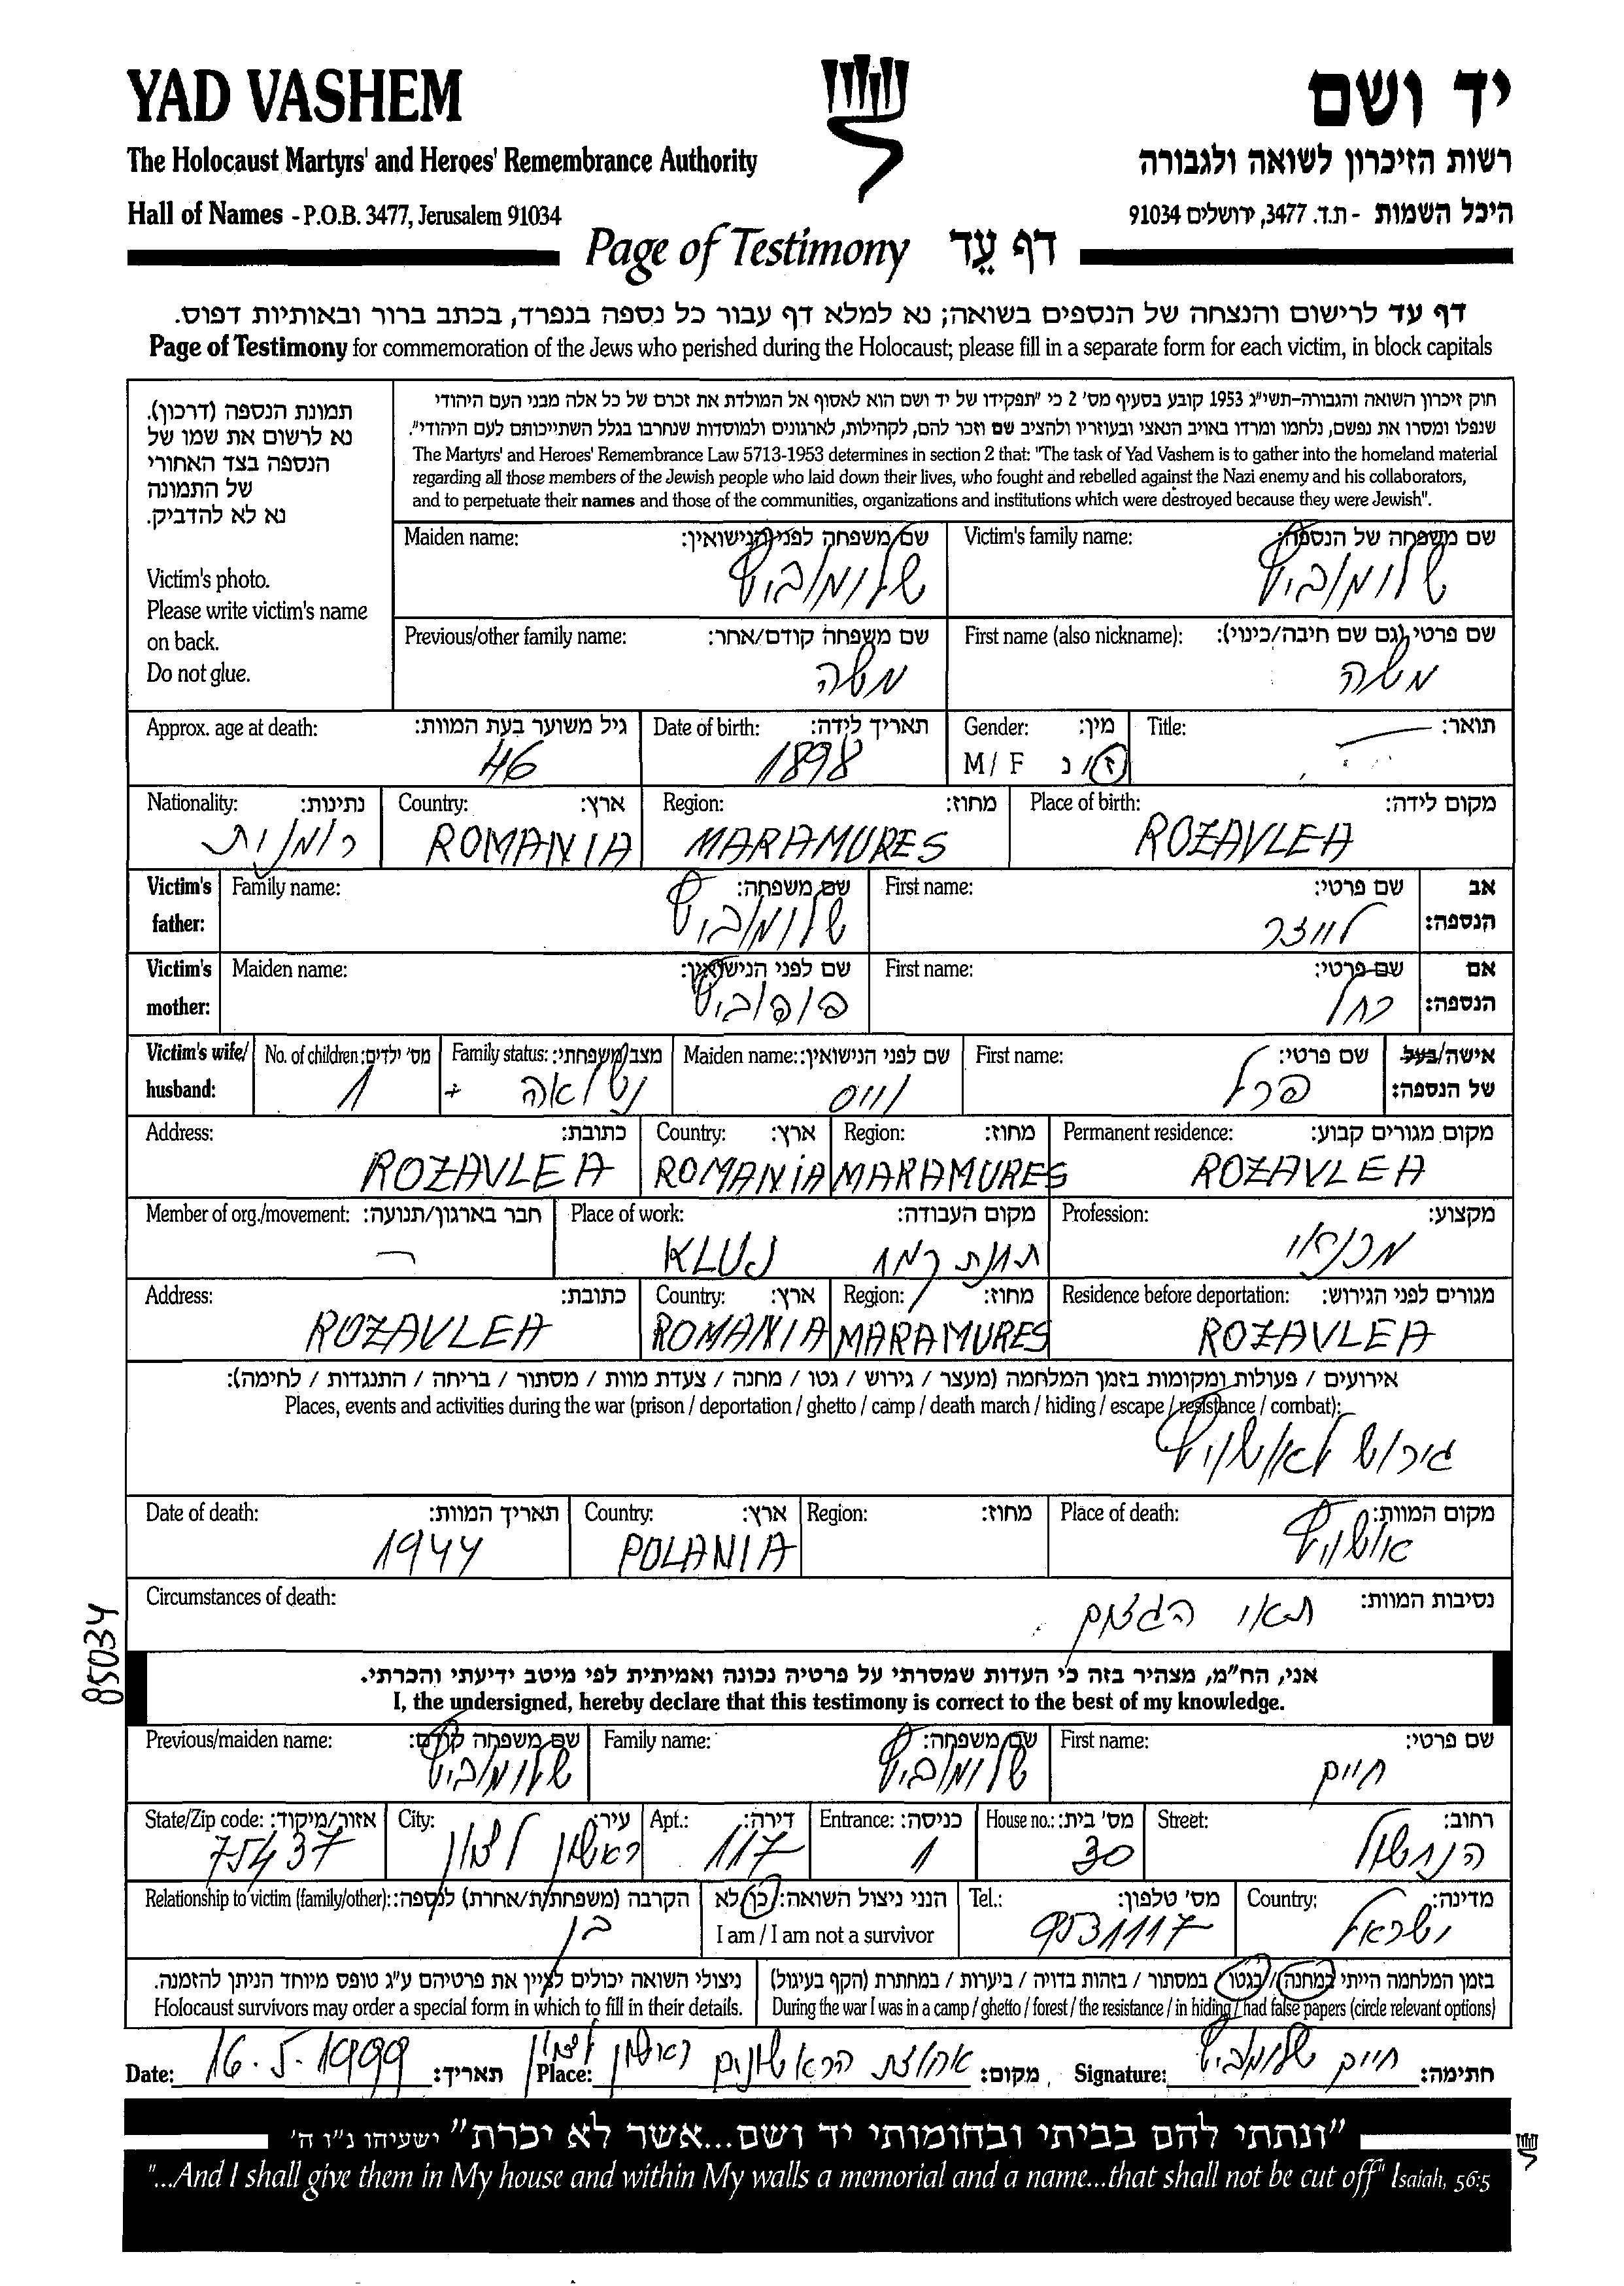 YAD VASHEM
יד ושם
The Holocaust Martyrs' and Heroes' Remembrance Authority
רשות הזיכרון לשואה ולגבורה
Hall of Names - P.O.B. 3477, Jerusalem 91034
היכל השמות - ת.ד. 3477, ירושלים 91034
Page of Testimony דף עֵד
דף עד לרישום והנצחה של הנספים בשואה; נא למלא דף עבור כל נספה בנפרד, בכתב ברור ובאותיות דפוס.
Page of Testimony for commemoration of the Jews who perished during the Holocaust; please fill in a separate form for each victim, in block capitals
תמונת הנספה (דרכון).
נא לרשום את שמו של
הנספה בצד האחורי
של התמונה
נא לא להדביק.
Victim's photo.
Please write victim's name
on back.
Do not glue.
חוק זיכרון השואה והגבורה-תשי"ג 1953 קובע בסעיף מס' 2 כי "תפקידו של יד ושם הוא לאסוף אל המולדת את זכרם של כל אלה מבני העם היהודי
שנפלו ומסרו את נפשם, נלחמו ומרדו באויב הנאצי ובעוזריו ולהציב שם וזכר להם, לקהילות, לארגונים ולמוסדות שנחרבו בגלל השתייכותם לעם היהודי".
The Martyrs' and Heroes' Remembrance Law 5713-1953 determines in section 2 that: "The task of Yad Vashem is to gather into the homeland material
regarding all those members of the Jewish people who laid down their lives, who fought and rebelled against the Nazi enemy and his collaborators,
and to perpetuate their names and those of the communities, organizations and institutions which were destroyed because they were Jewish".
Victim's family name: שם משפחה של הנספה:
שלומוביץ
Maiden name: שם משפחה לפני הנישואין:
שלומוביץ
First name (also nickname): שם פרטי (גם שם חיבה/כינוי):
משה
Previous/other family name: שם משפחה קודם/אחר:
משה
Title: תואר:
Gender: מין:
M / F ז / נ
Date of birth: תאריך לידה:
1898
Approx. age at death: גיל משוער בעת המוות:
46
Place of birth: מקום לידה:
ROZAVLEA
Region: מחוז:
MARAMURES
Country: ארץ:
ROMANIA
Nationality: נתינות:
רומנית
Victim's father: אב הנספה:
First name: שם פרטי:
לייזר
Family name: שם משפחה:
שלומוביץ
Victim's mother: אם הנספה:
First name: שם פרטי:
רחל
Maiden name: שם לפני הנישואין:
פופוביץ
Victim's wife/ husband: אישה/בעל של הנספה:
First name: שם פרטי:
פרל
Maiden name: שם לפני הנישואין:
וייס
Family status: מצב משפחתי:
נשואה +
No. of children: מס' ילדים:
1
Permanent residence: מקום מגורים קבוע:
ROZAVLEA
Region: מחוז:
MARAMURES
Country: ארץ:
ROMANIA
Address: כתובת:
ROZAVLEA
Profession: מקצוע:
Place of work: מקום העבודה:
KLUJ
Member of org./movement: חבר בארגון/תנועה:
Residence before deportation: מגורים לפני הגירוש:
ROZAVLEA
Region: מחוז:
MARAMURES
Country: ארץ:
ROMANIA
Address: כתובת:
ROZAVLEA
אירועים / פעולות ומקומות בזמן המלחמה (מעצר / גירוש / גטו / מחנה / צעדת מוות / מסתור / בריחה / התנגדות / לחימה):
Places, events and activities during the war (prison / deportation / ghetto / camp / death march / hiding / escape / resistance / combat):
גירוש לאושויץ
Place of death: מקום המוות:
אושויץ
Region: מחוז:
Country: ארץ:
POLANIA
Date of death: תאריך המוות:
1944
Circumstances of death: נסיבות המוות:
תאי הגזים
85034
אני, הח"מ, מצהיר בזה כי העדות שמסרתי על פרטיה נכונה ואמיתית לפי מיטב ידיעתי והכרתי.
I, the undersigned, hereby declare that this testimony is correct to the best of my knowledge.
First name: שם פרטי:
חיים
Family name: שם משפחה:
שלומוביץ
Previous/maiden name: שם משפחה קודם:
שלומוביץ
Street: רחוב:
הנחשול
House no.: מס' בית:
30
Entrance: כניסה:
1
Apt.: דירה:
117
City: עיר:
ראשון לציון
State/Zip code: אזור/מיקוד:
75437
Country: מדינה:
ישראל
Tel.: מס' טלפון:
9531117
הנני ניצול השואה: כן / לא
I am / I am not a survivor
Relationship to victim (family/other): הקרבה (משפחתית/אחרת) לנספה:
בן
בזמן המלחמה הייתי במחנה / בגטו / במסתור / בזהות בדויה / ביערות / במחתרת (הקף בעיגול)
During the war I was in a camp / ghetto / forest / the resistance / in hiding / had false papers (circle relevant options)
ניצולי השואה יכולים לציין את פרטיהם ע"ג טופס מיוחד הניתן להזמנה.
Holocaust survivors may order a special form in which to fill in their details.
Signature: חיים שלומוביץ חתימה:
Place: אחוזת הראשונים ראשון לציון מקום:
Date: 16.5.1999 תאריך:
"ונתתי להם בביתי ובחומותי יד ושם...אשר לא יכרת" ישעיהו נ"ו ה'
"...And I shall give them in My house and within My walls a memorial and a name...that shall not be cut off" Isaiah, 56:5